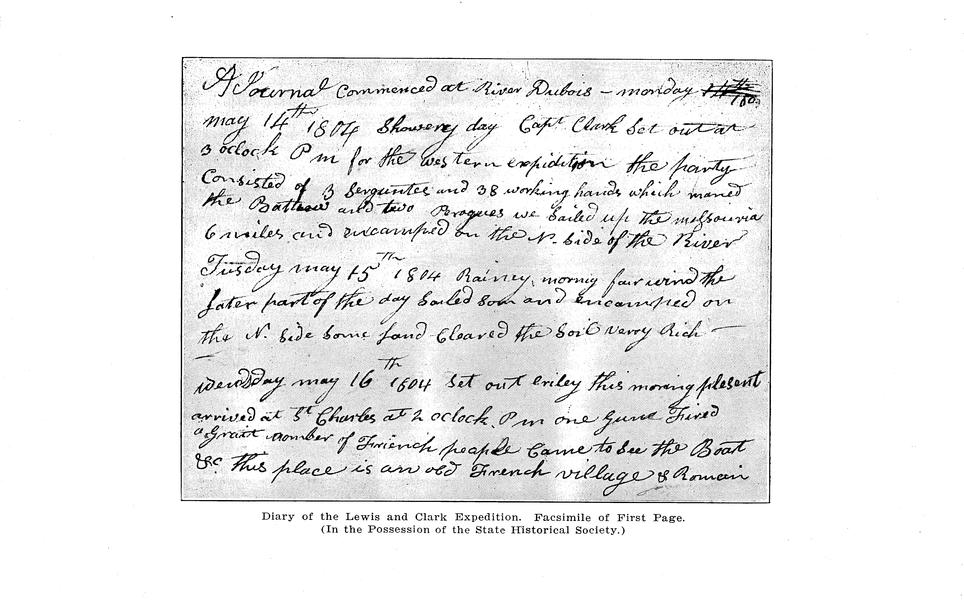 A Journal Commenced at River Dubois – monday
may 14th 1804 Showery day Capt Clark Set out at
3 oclock P m for the western expidition the party
Consisted of 3 Serguntes and 38 working hands which maned
the Batteow and two Perogues we Sailed up the missouria
6 miles and encamped on the N. Side of the River
Tusday may 15th 1804 Rainey, mornig fair wind the
later part of the day Sailed Som and encamped on
the N. Side Some Land Cleared the Soil verry Rich —
wendsday may 16th 1804 Set out eriley this morning plesent
arrived at St Charles at 2 oclock P m one Gunn Fired
a Grait nomber of Friench people Came to See the Boat
&c this place is an old French village & Romain
Diary of the Lewis and Clark Expedition. Facsimile of First Page.
(In the Possession of the State Historical Society.)